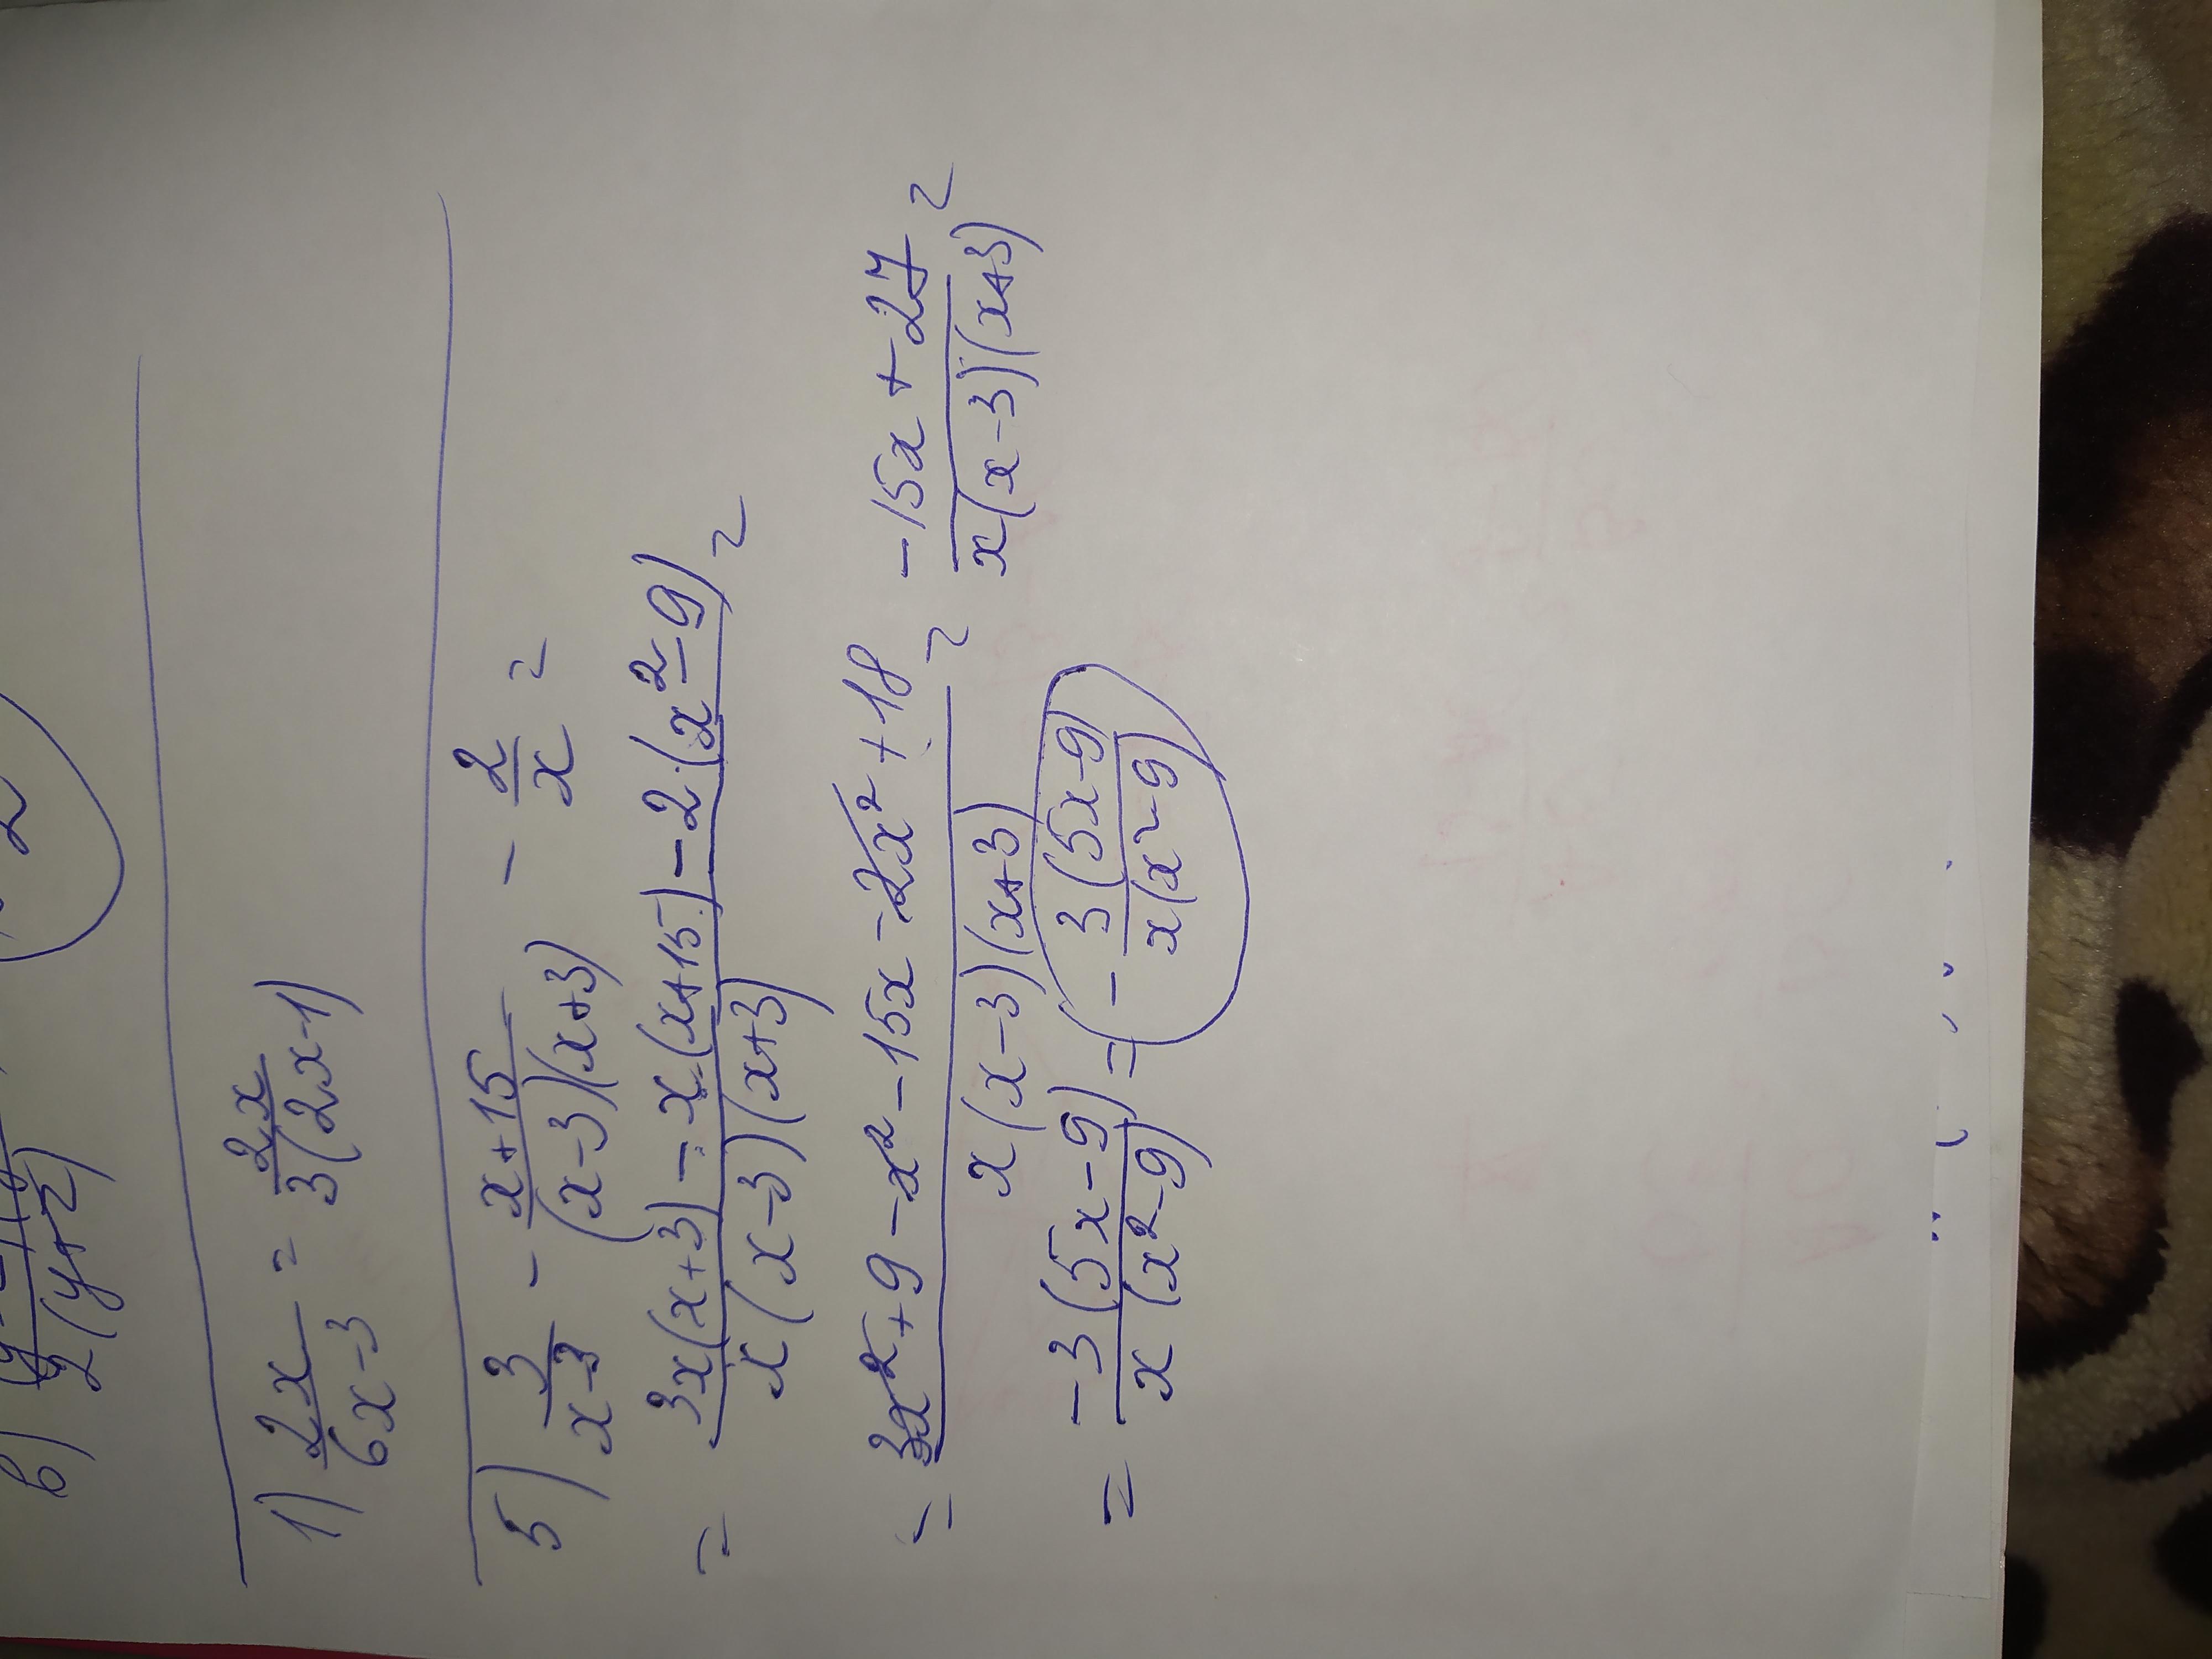 в)
2(y+2)
2
1) 2x/(6x-3) = 2x/(3(2x-1))
5) 3/(x-3) - (x+15)/((x-3)(x+3)) - 2/x =
= (3x(x+3) - x(x+15) - 2·(x²-9))/(x(x-3)(x+3)) =
= (3x²+9 - x² - 15x - 2x² + 18)/(x(x-3)(x+3)) = (-15x + 27)/(x(x-3)(x+3)) =
= (-3(5x-9))/(x(x²-9)) = - (3(5x-9))/(x(x²-9))